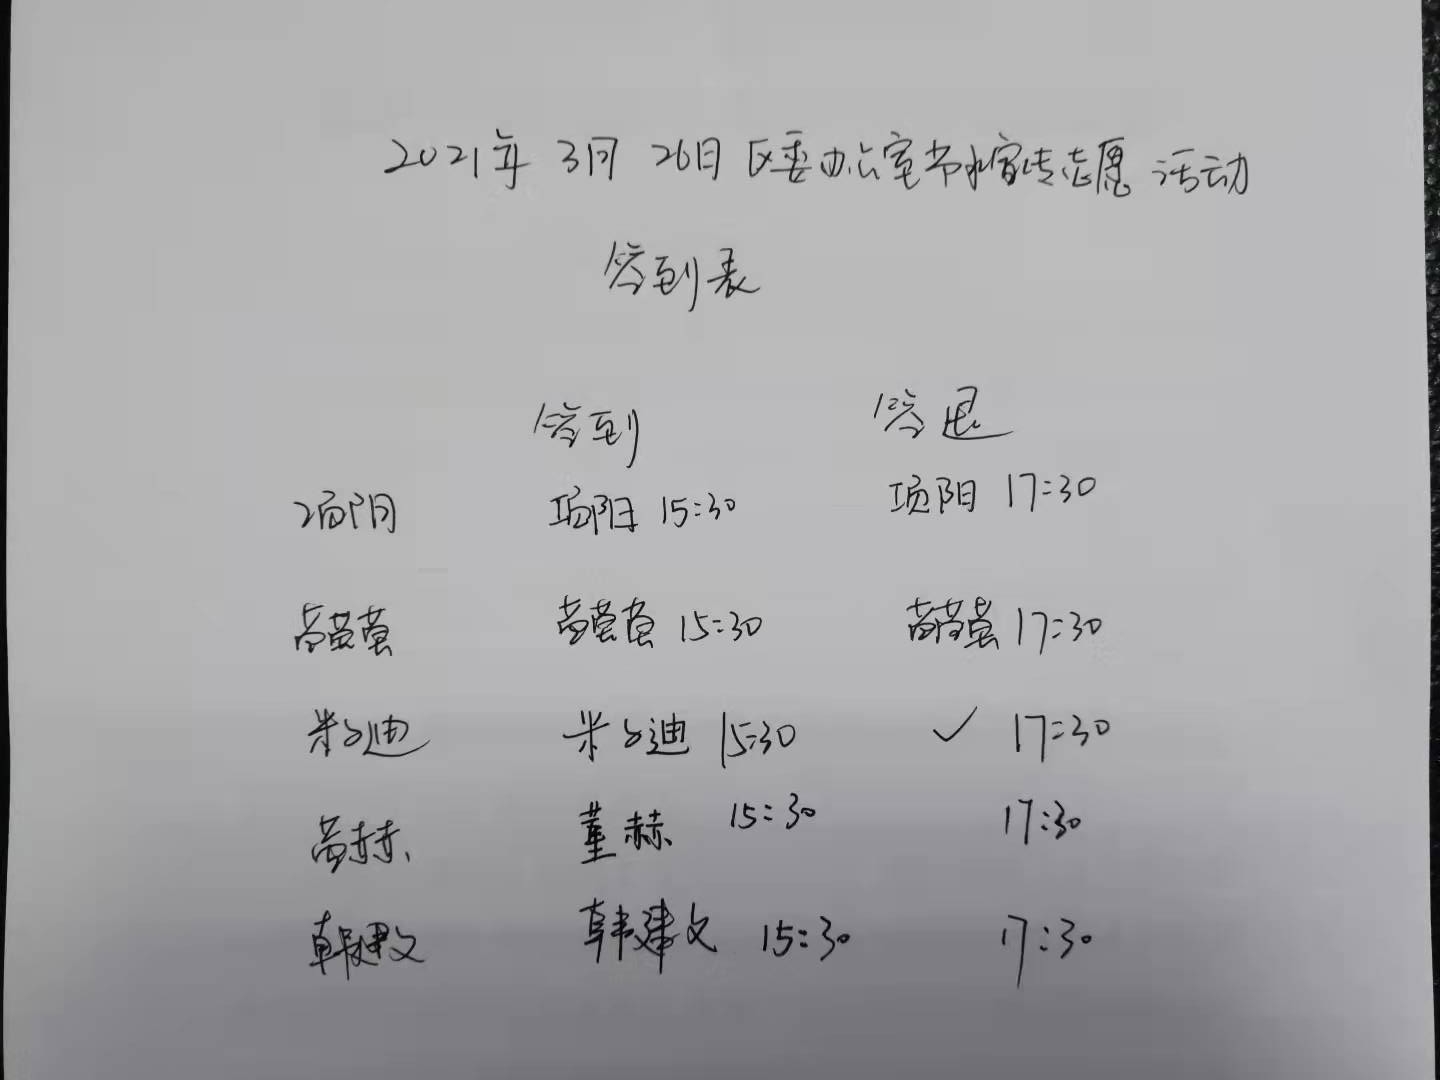 2021年 3月 26日区委办公室节水宣传志愿活动
签到表
签到 签退
项阳 项阳 15:30 项阳 17:30
15:30 17:30
迪 迪 15:30 ✓ 17:30
董赫 董赫 15:30 17:30
韩建文 韩建文 15:30 17:30